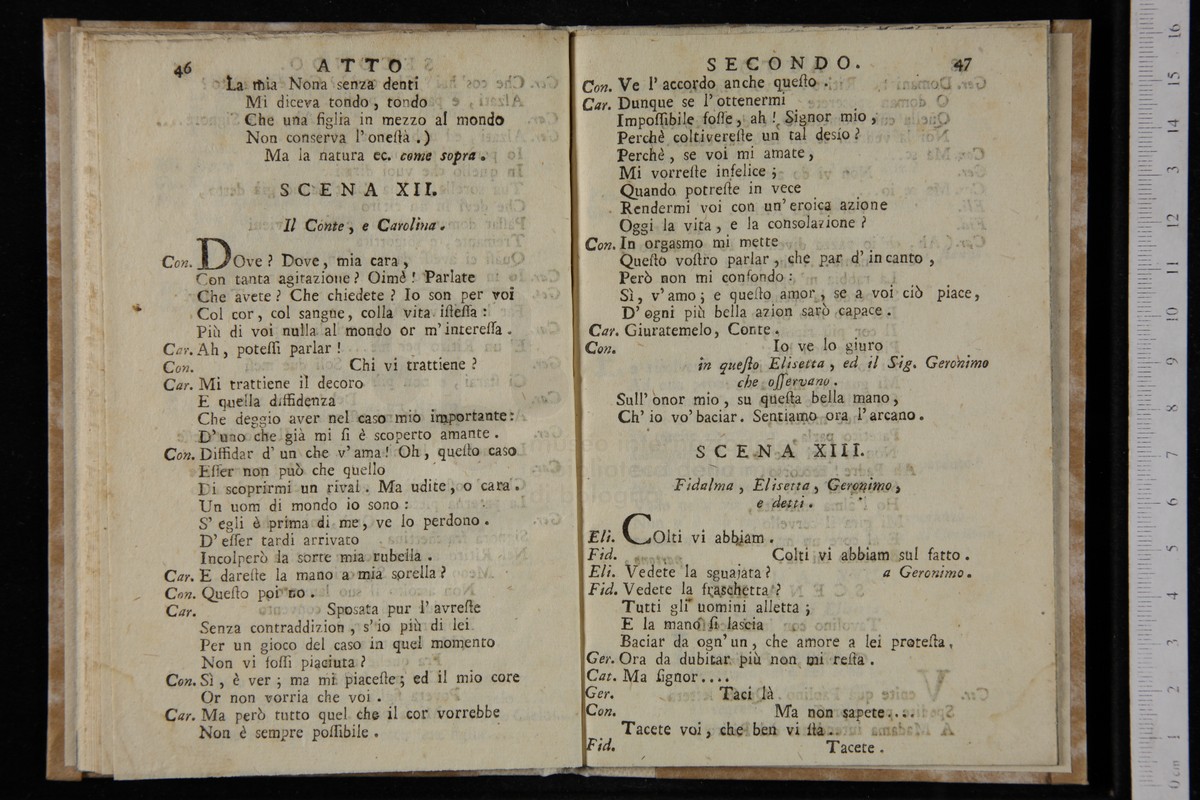 46 ATTO
La mia Nona senza denti
Mi diceva tondo, tondo
Che una figlia in mezzo al mondo
Non conserva l'onestà.)
Ma la natura ec. come sopra.
SCENA XII.
Il Conte, e Carolina.
Con. DOve? Dove, mia cara,
Con tanta agitazione? Oimè! Parlate
Che avete? Che chiedete? Io son per voi
Col cor, col sangue, colla vita istessa:
Più di voi nulla al mondo or m'interessa.
Car. Ah, potessi parlar!
Con. Chi vi trattiene?
Car. Mi trattiene il decoro
E quella diffidenza
Che deggio aver nel caso mio importante:
D'uno che già mi si è scoperto amante.
Con. Diffidar d'un che v'ama! Oh, questo caso
Esser non può che quello
Di scoprirmi un rival. Ma udite, o cara.
Un uom di mondo io sono:
S'egli è prima di me, ve lo perdono.
D'esser tardi arrivato
Incolperò la sorte mia rubella.
Car. E dareste la mano a mia sorella?
Con. Questo poi no.
Car. Sposata pur l'avreste
Senza contraddizion, s'io più di lei
Per un gioco del caso in quel momento
Non vi fossi piaciuta?
Con. Sì, è ver; ma mi piaceste; ed il mio core
Or non vorria che voi.
Car. Ma però tutto quel che il cor vorrebbe
Non è sempre possibile.
SECONDO. 47
Con. Ve l'accordo anche questo.
Car. Dunque se l'ottenermi
Impossibile fosse, ah! Signor mio,
Perchè coltivereste un tal desio?
Perchè, se voi mi amate,
Mi vorreste infelice;
Quando potreste in vece
Rendermi voi con un'eroica azione
Oggi la vita, e la consolazione?
Con. In orgasmo mi mette
Questo vostro parlar, che par d'incanto,
Però non mi confondo:
Sì, v'amo; e questo amor, se a voi ciò piace,
D'ogni più bella azion sarò capace.
Car. Giuratemelo, Conte.
Con. Io ve lo giuro
in questo Elisetta, ed il Sig. Geronimo
che osservano.
Sull'onor mio, su questa bella mano,
Ch'io vo'baciar. Sentiamo ora l'arcano.
SCENA XIII.
Fidalma, Elisetta, Geronimo,
e detti.
Eli. COlti vi abbiam.
Fid. Colti vi abbiam sul fatto.
Eli. Vedete la sguajata? a Geronimo.
Fid. Vedete la fraschetta?
Tutti gli uomini alletta;
E la mano si lascia
Baciar da ogn'un, che amore a lei protesta.
Ger. Ora da dubitar più non mi resta.
Car. Ma signor....
Ger. Taci là
Con. Ma non sapete....
Tacete voi, che ben vi stà..
Fid. Tacete.